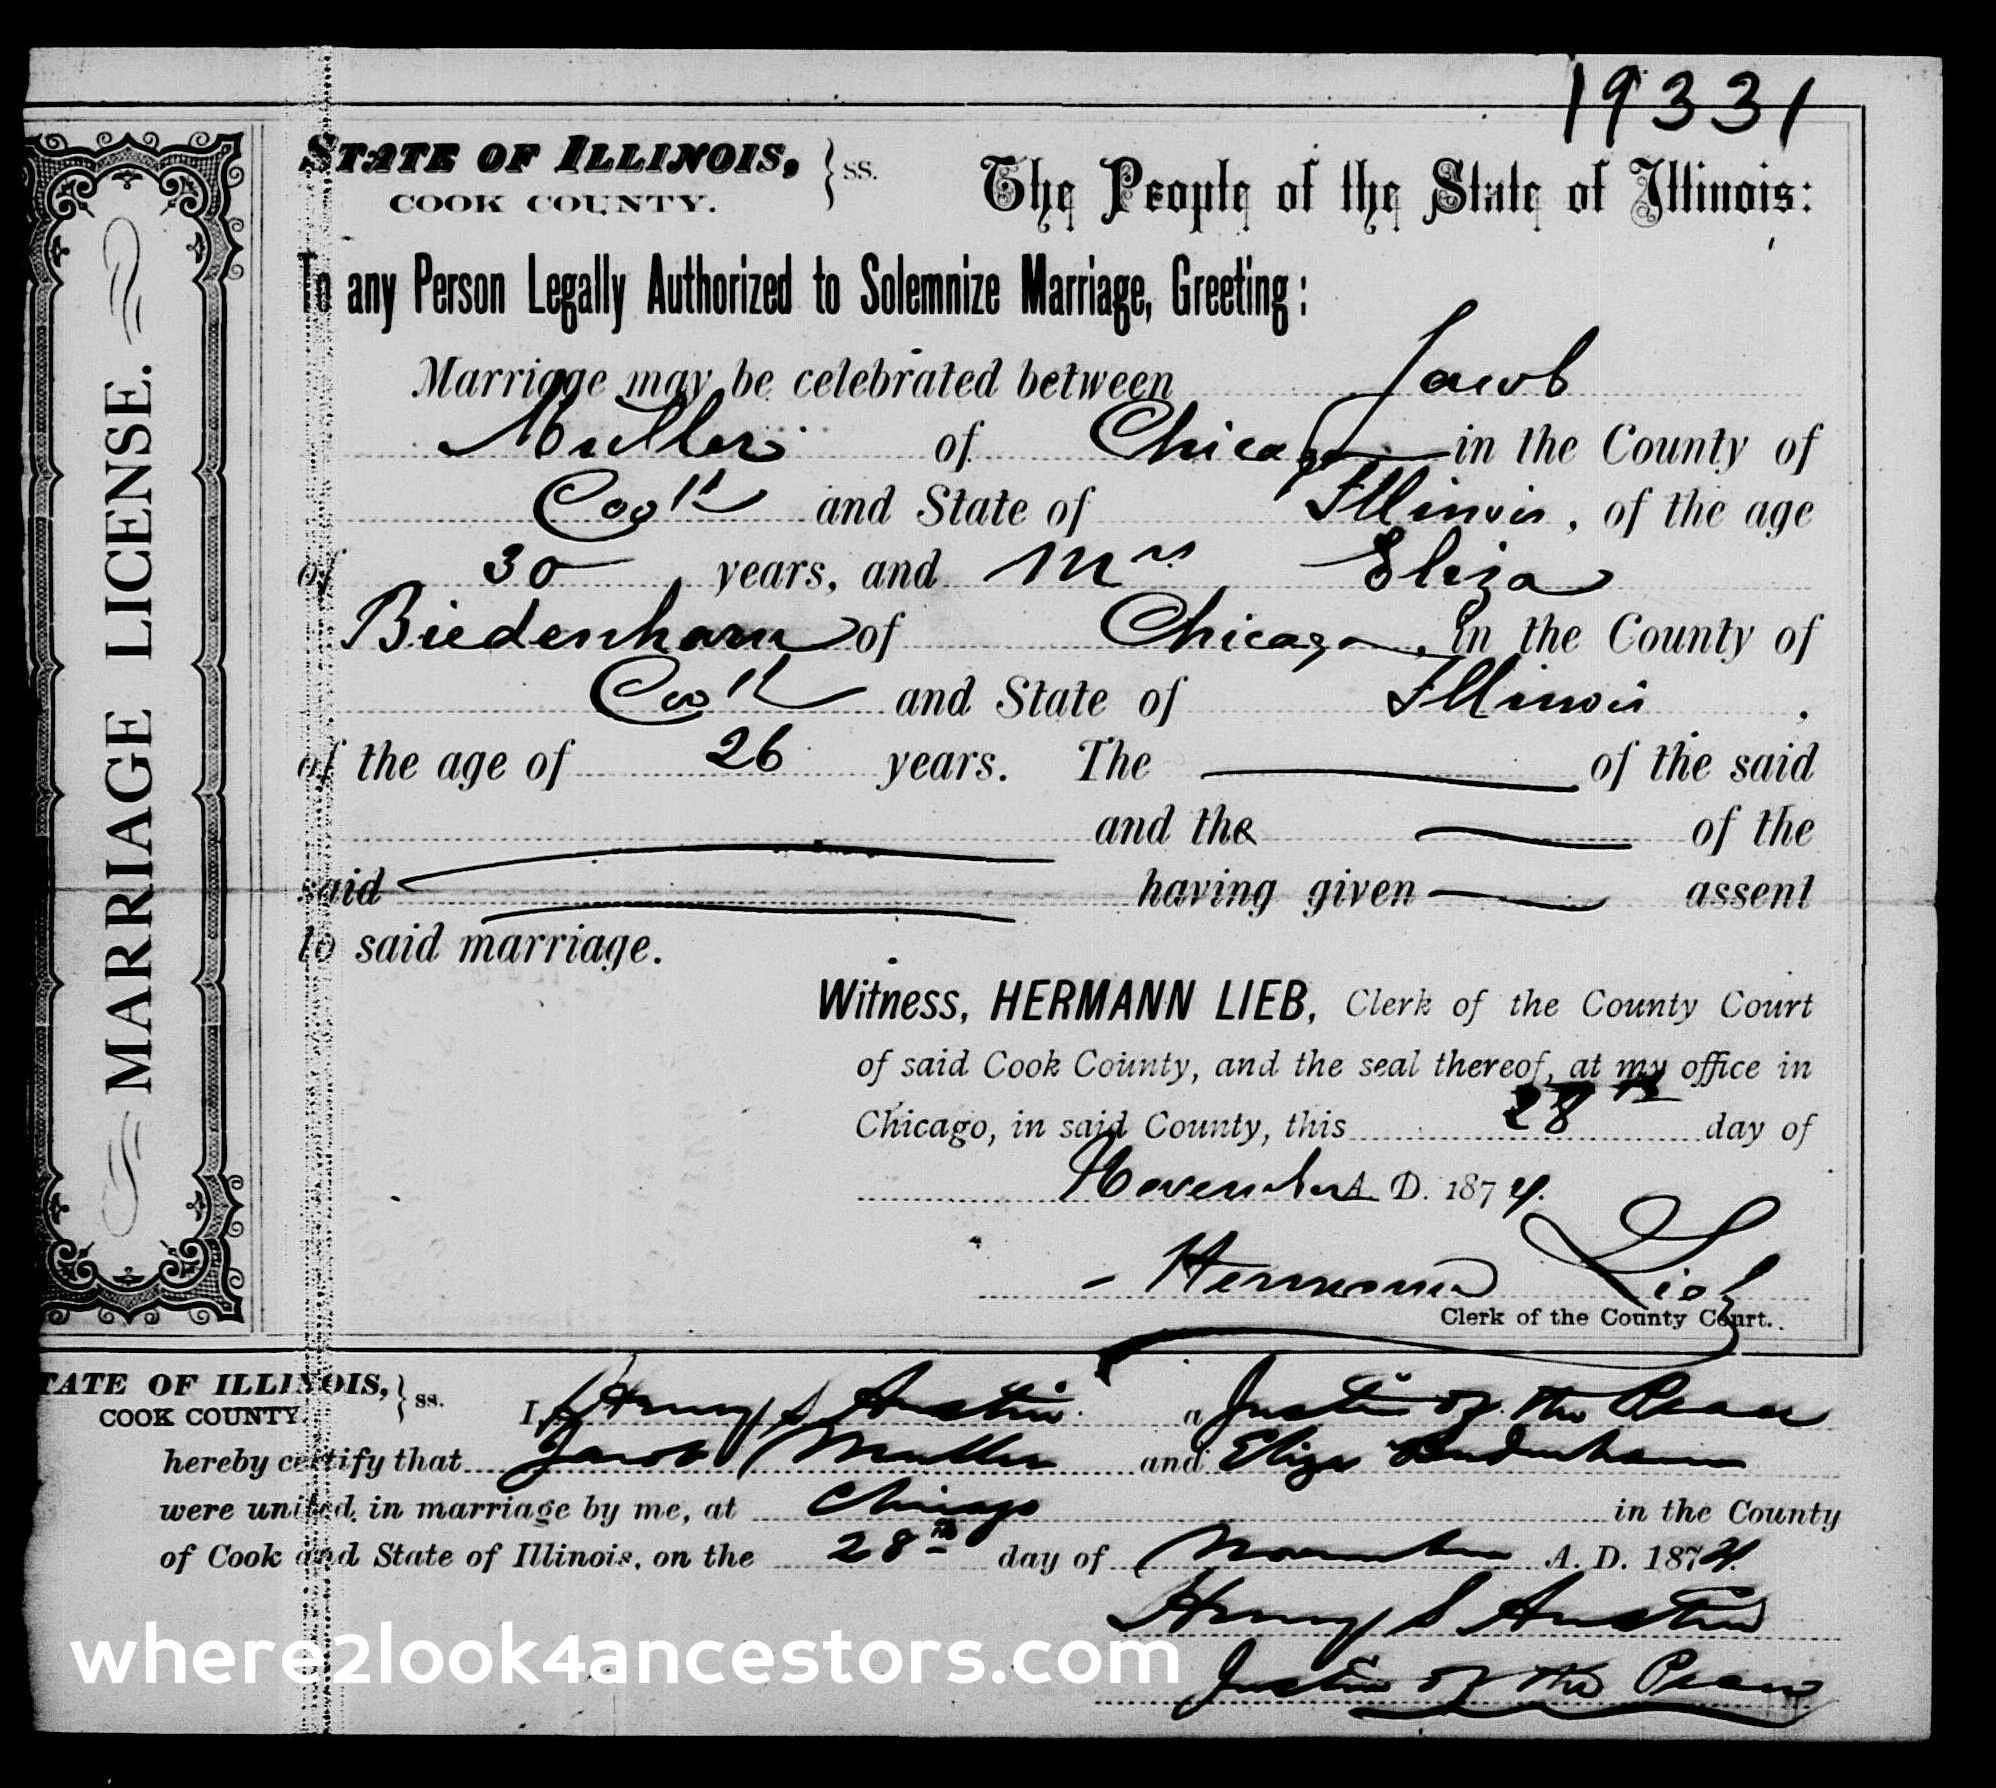 19331
MARRIAGE LICENSE.
STATE OF ILLINOIS, } SS.
COOK COUNTY.
The People of the State of Illinois:
To any Person Legally Authorized to Solemnize Marriage, Greeting:
Marriage may be celebrated between Jacob
Muller of Chicago in the County of
Cook and State of Illinois, of the age
of 30 years, and Mrs Eliza
Biedenharn of Chicago, in the County of
Cook and State of Illinois,
of the age of 26 years. The of the said
and the of the
said having given assent
to said marriage.
Witness, HERMANN LIEB, Clerk of the County Court
of said Cook County, and the seal thereof, at my office in
Chicago, in said County, this 28th day of
November A. D. 1874.
Hermann Lieb
Clerk of the County Court.
TATE OF ILLINOIS, } ss.
COOK COUNTY.
I, Henry S Austin a Justice of the Peace
hereby certify that Jacob Muller and Eliza Biedenharn
were united in marriage by me, at Chicago in the County
of Cook and State of Illinois, on the 28th day of November A. D. 1874.
Henry S Austin
Justice of the Peace
where2look4ancestors.com